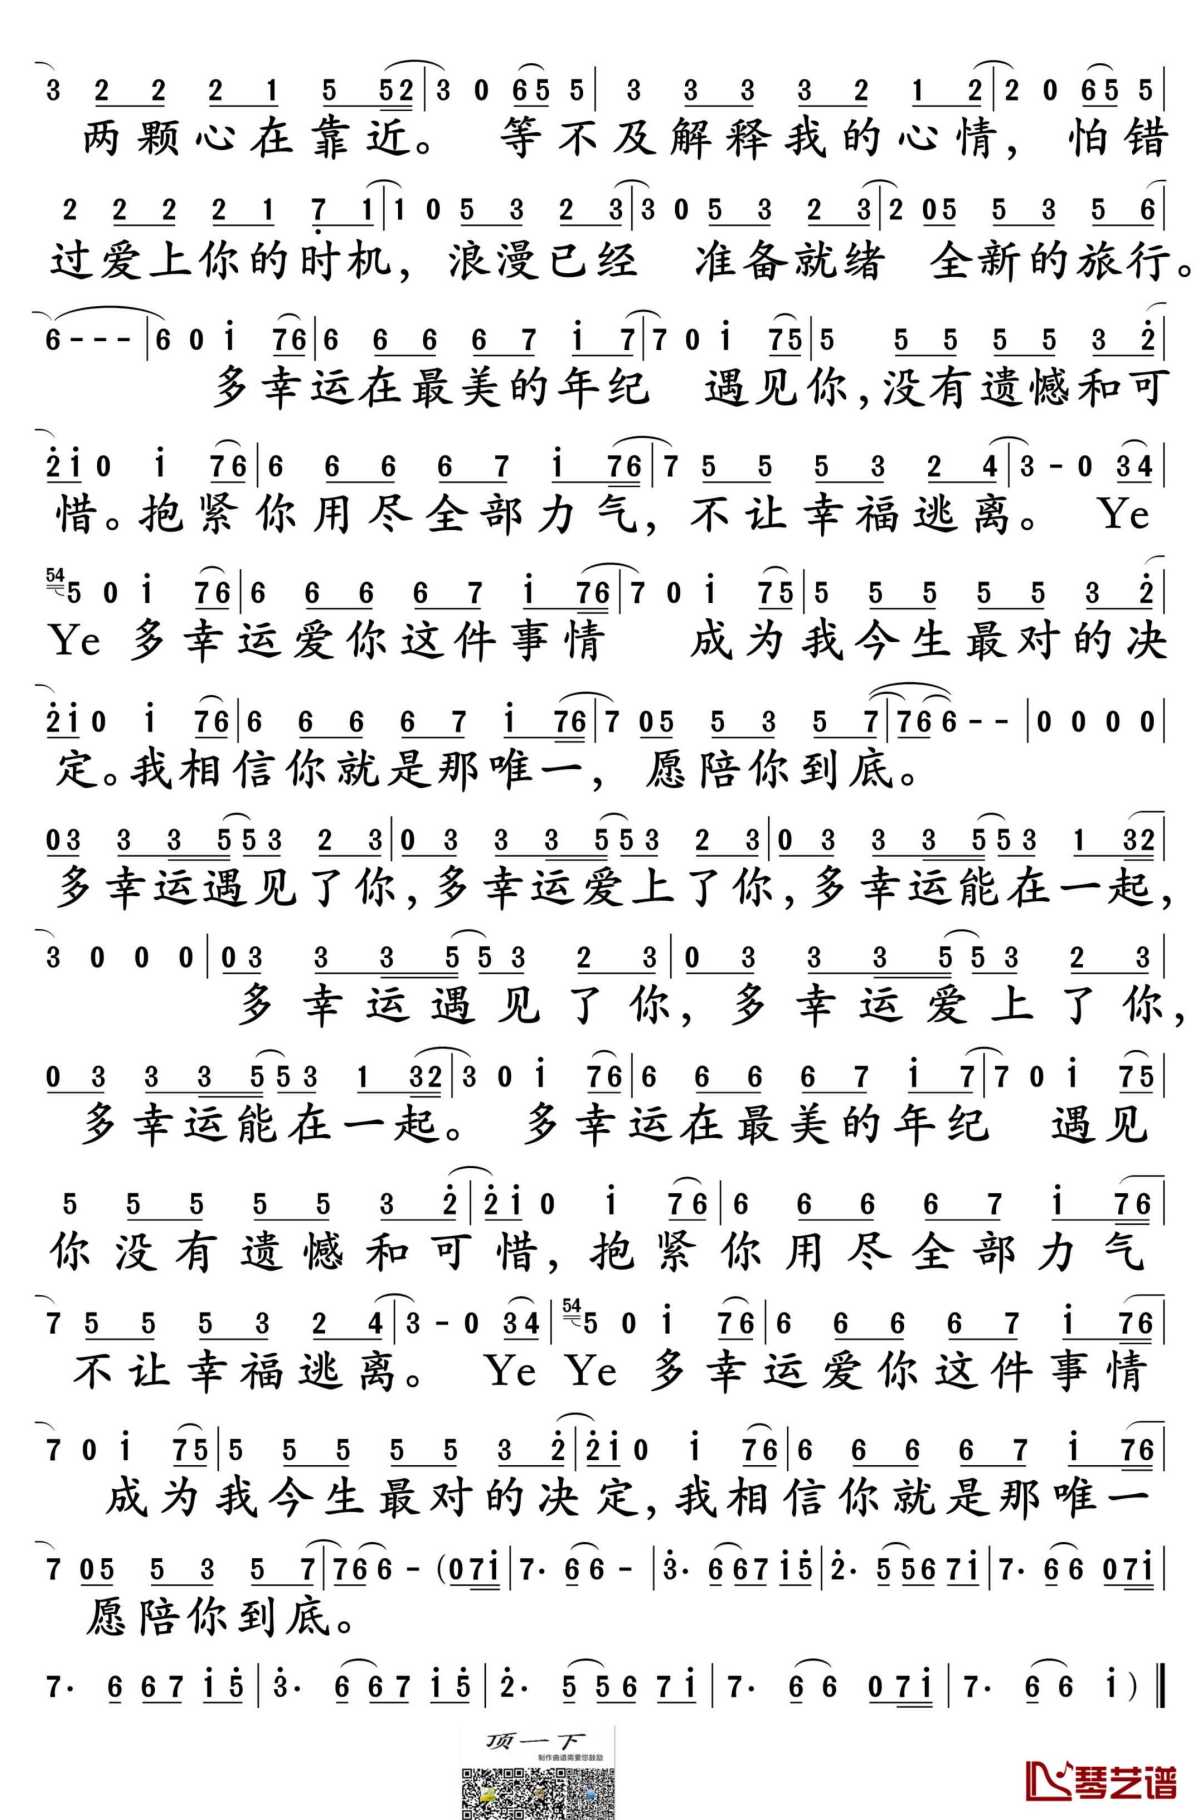 3 2 2 2 1 5 52|3 0 65 5|3 3 3 3 2 1 2|2 0 65 5|
两颗心在靠近。 等不及解释我的心情，怕错
2 2 2 2 1 7 1|1 0 5 3 2 3|3 0 5 3 2 3|2 05 5 3 5 6|
过爱上你的时机，浪漫已经 准备就绪 全新的旅行。
6---|6 0 i 76|6 6 6 6 7 i 7|7 0 i 75|5 5 5 5 5 3 2|
多幸运在最美的年纪 遇见你，没有遗憾和可
2i0 i 76|6 6 6 6 7 i 76|7 5 5 5 3 2 4|3-0 34|
惜。抱紧你用尽全部力气，不让幸福逃离。 Ye
54 5 0 i 76|6 6 6 6 7 i 76|7 0 i 75|5 5 5 5 5 3 2|
Ye 多幸运爱你这件事情 成为我今生最对的决
2i0 i 76|6 6 6 6 7 i 76|7 05 5 3 5 7|766--|0 0 0 0|
定。我相信你就是那唯一，愿陪你到底。
03 3 3 5 53 2 3|0 3 3 3 5 53 2 3|0 3 3 3 5 53 1 32|
多幸运遇见了你，多幸运爱上了你，多幸运能在一起，
3 0 0 0|03 3 3 5 53 2 3|0 3 3 3 5 53 2 3|
多幸运遇见了你，多幸运爱上了你，
0 3 3 3 5 53 1 32|3 0 i 76|6 6 6 6 7 i 7|7 0 i 75|
多幸运能在一起。 多幸运在最美的年纪 遇见
5 5 5 5 5 3 2|2i 0 i 76|6 6 6 6 7 i 76|
你没有遗憾和可惜，抱紧你用尽全部力气
7 5 5 5 3 2 4|3-0 34|54 5 0 i 76|6 6 6 6 7 i 76|
不让幸福逃离。 Ye Ye 多幸运爱你这件事情
7 0 i 75|5 5 5 5 5 3 2|2i0 i 76|6 6 6 6 7 i 76|
成为我今生最对的决定，我相信你就是那唯一
7 05 5 3 5 7|766-(07i|7· 66-|3· 667 i5|2· 556 7i|7· 66 07i|
愿陪你到底。
7· 667 i5|3· 667 i5|2· 556 7i|7· 66 07i|7· 66 i)‖
顶一下
制作曲谱需要您鼓励
琴艺谱